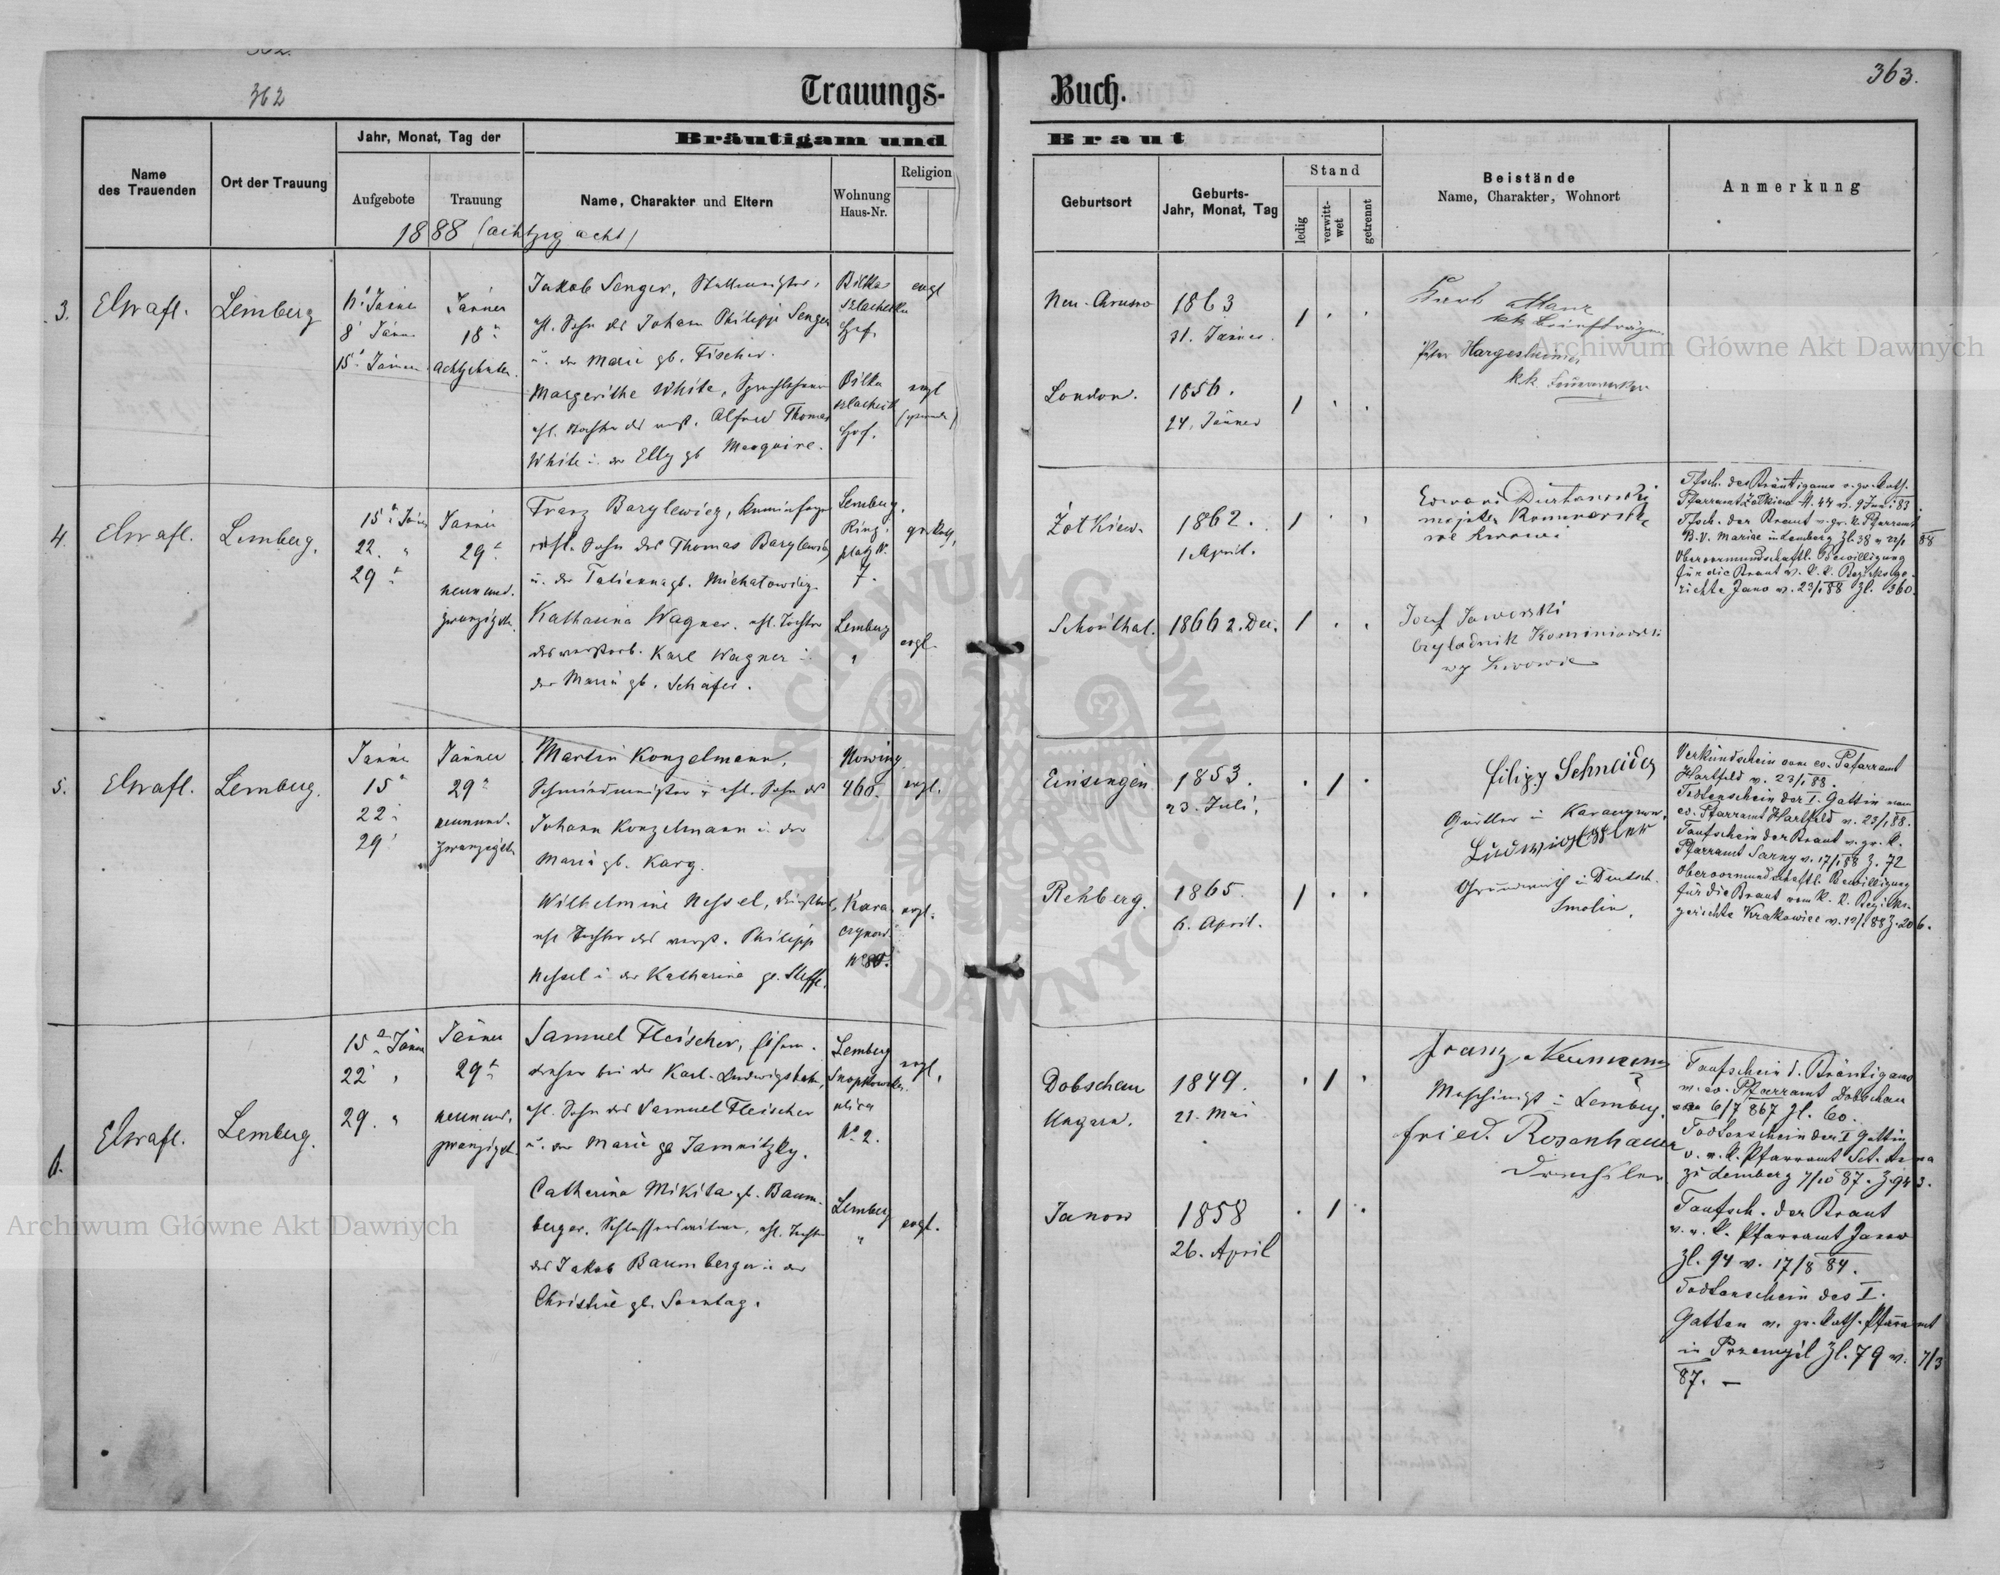 362
Trauungs-
Bräutigam und
Name
des Trauenden
Ort der Trauung
Jahr, Monat, Tag der
Aufgebote
Trauung
Name, Charakter und Eltern
Wohnung
Haus-Nr.
Religion
1888 (achtzig acht)
3.
Lemberg
8 Jänn
15. Jänner
Jänner
18
achtzehnten
Jakob Senger,
ehl. Sohn des Johann Philipp Senger
u. der Marie gb. Fischer.
Bilka
Szlachecka
Hof.
evgl
Margerithe White,
ehl. Tochter des verst. Alfred Thomas
White u. der Elly gb
Bilka
Hof.
evgl
4.
Lemberg.
15
22. "
29
Jänner
29
neunund.
zwanzigsten.
Franz Barylewicz,
ehl. Sohn des Thomas Barylewicz
u. der Tatianna gb. Michatowicz
Lemberg.
Ring-
platz N.
7.
gr. kath.
Katharina Wagner, ehl. Tochter
des verstorb. Karl Wagner u.
der Maria gb. Schäfer.
Lemberg
"
evgl.
5.
Lemberg.
Jänner
15
22
29
Jänner
29
neunund.
zwanzigste
Martin Konzelmann,
Schmiedmeister, ehl. Sohn des
Johann Konzelmann u. der
Maria gb. Karg.
460.
evgl.
Wilhelmine Nessel,
ehl Tochter des verst. Philipp
Nessel u. der Katharina ge. Steffe.
Kara-
czynow
evgl.
6.
Lemberg.
15 Jänner
22 "
29. "
Jänner
29
neunund.
zwanzigste
Samuel Fleischer, Eisen-
dreher bei der Karl-Ludwigsbahn,
ehl. Sohn des Samuel Fleischer
u. der Marie gb Jamnitzky.
Lemberg
Snopkowska
ulica
No. 2.
evgl.
Catherina Mikita gb. Baum-
berger, Schlosserswitwe, ehl. Tochter
des Jakob Baumberger u. der
Christine gb. Sonntag.
Lemberg
"
evgl.
363.
Buch.
Braut
Geburtsort
Geburts-
Jahr, Monat, Tag
Stand
ledig
verwitt-
wet
getrennt
Beistände
Name, Charakter, Wohnort
Anmerkung
1863
31. Jänner.
kk Briefträger
Peter Hargesheimer
kk Feuerwerker
London.
1856.
24. Jänner
Żołkiew.
1862.
1 April.
Tfsch. des Bräutigams v. gr. kath.
Pfarramt Żołkiew N. 44 v. 9 Juni 83
Tfsch. der Braut v. gr. k. Pfarramt
B. V. Mariae in Lemberg Zl. 38 v 22/1 88
Obervormundschaftl. Bewilligung
für die Braut v. k. k. Bezirksge-
richte Janow v. 23/1 88 Zl. 360.
Schönthal.
1866 2. Dez.
Józef Jaworski
Czeladnik Kominiarski
we Lwowie
Einsingen
1853.
23. Juli.
Filipp Schneider
Ludwig Esler
Grundwirth in Deutsch-
Smolin.
Verkündschein vom ev. Pfarramt
Hartfeld v. 23/1 88.
Todtenschein der I. Gattin vom
ev. Pfarramt Hartfeld v. 23/1 88.
Taufschein der Braut v. gr. k.
Pfarramt Sarny v. 17/1 88 Z. 72
Obervormundschaftl. Bewilligung
für die Braut vom k. k. Bezirks-
gerichte Krakowiec v. 12/1 88 Z. 206.
Rehberg.
1865.
6. April.
Dobschau
Ungarn.
1849.
21. Mai
Franz Neumann
Maschinist in Lemberg.
Fried. Rosenhauer
Drechsler
Taufschein d. Bräutigams
v. ev. Pfarramt Dobschau
6/7 867 Zl. 60.
Todtenschein der I Gattin
v. r. k. Pfarramt Sct. Anna
zu Lemberg 7/10 87. Z. 943.
Janow
1858
26. April
Taufsch. der Braut
v. r. k. Pfarramt Janow
Zl. 94 v. 17/8 84.
Todtenschein des I.
Gatten v. gr. kath. Pfarramt
in Przemyśl Zl. 79 v. 7/3
87. —
Archiwum Główne Akt Dawnych
Archiwum Główne Akt Dawnych
ARCHIWUM GŁÓWNE AKT DAWNYCH